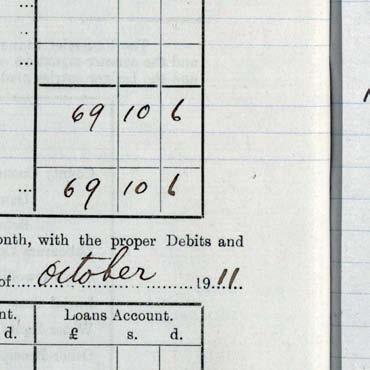 ...
...
...
69 10 6
... 69 10 6
onth, with the proper Debits and
of....October.........1911....
nt. Loans Account.
d. £ s. d.